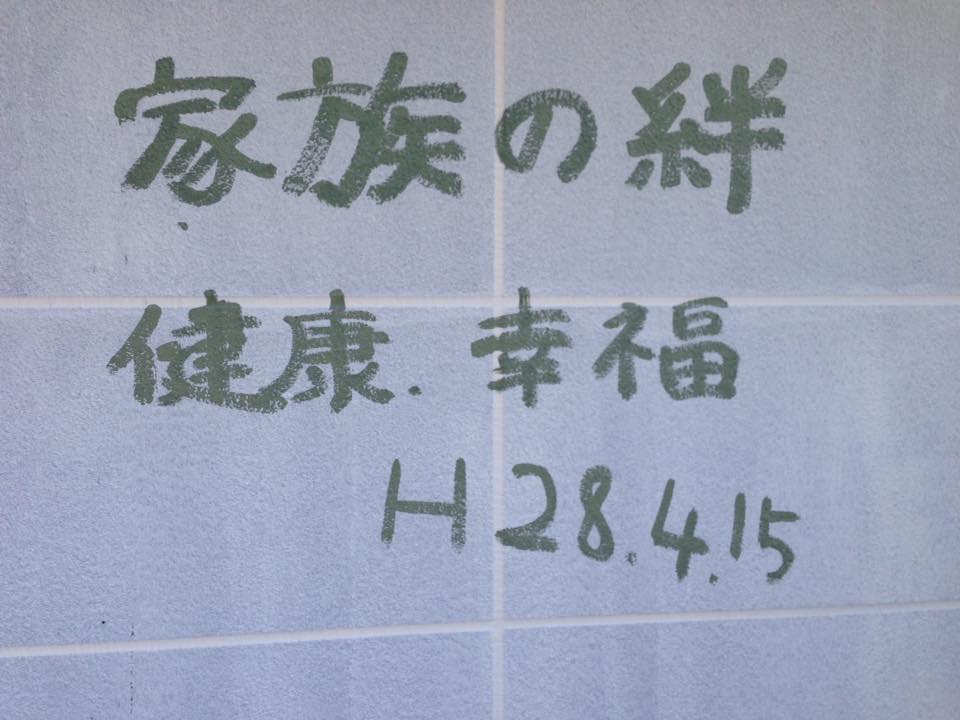 家族の絆
健康.幸福
H28.4.15